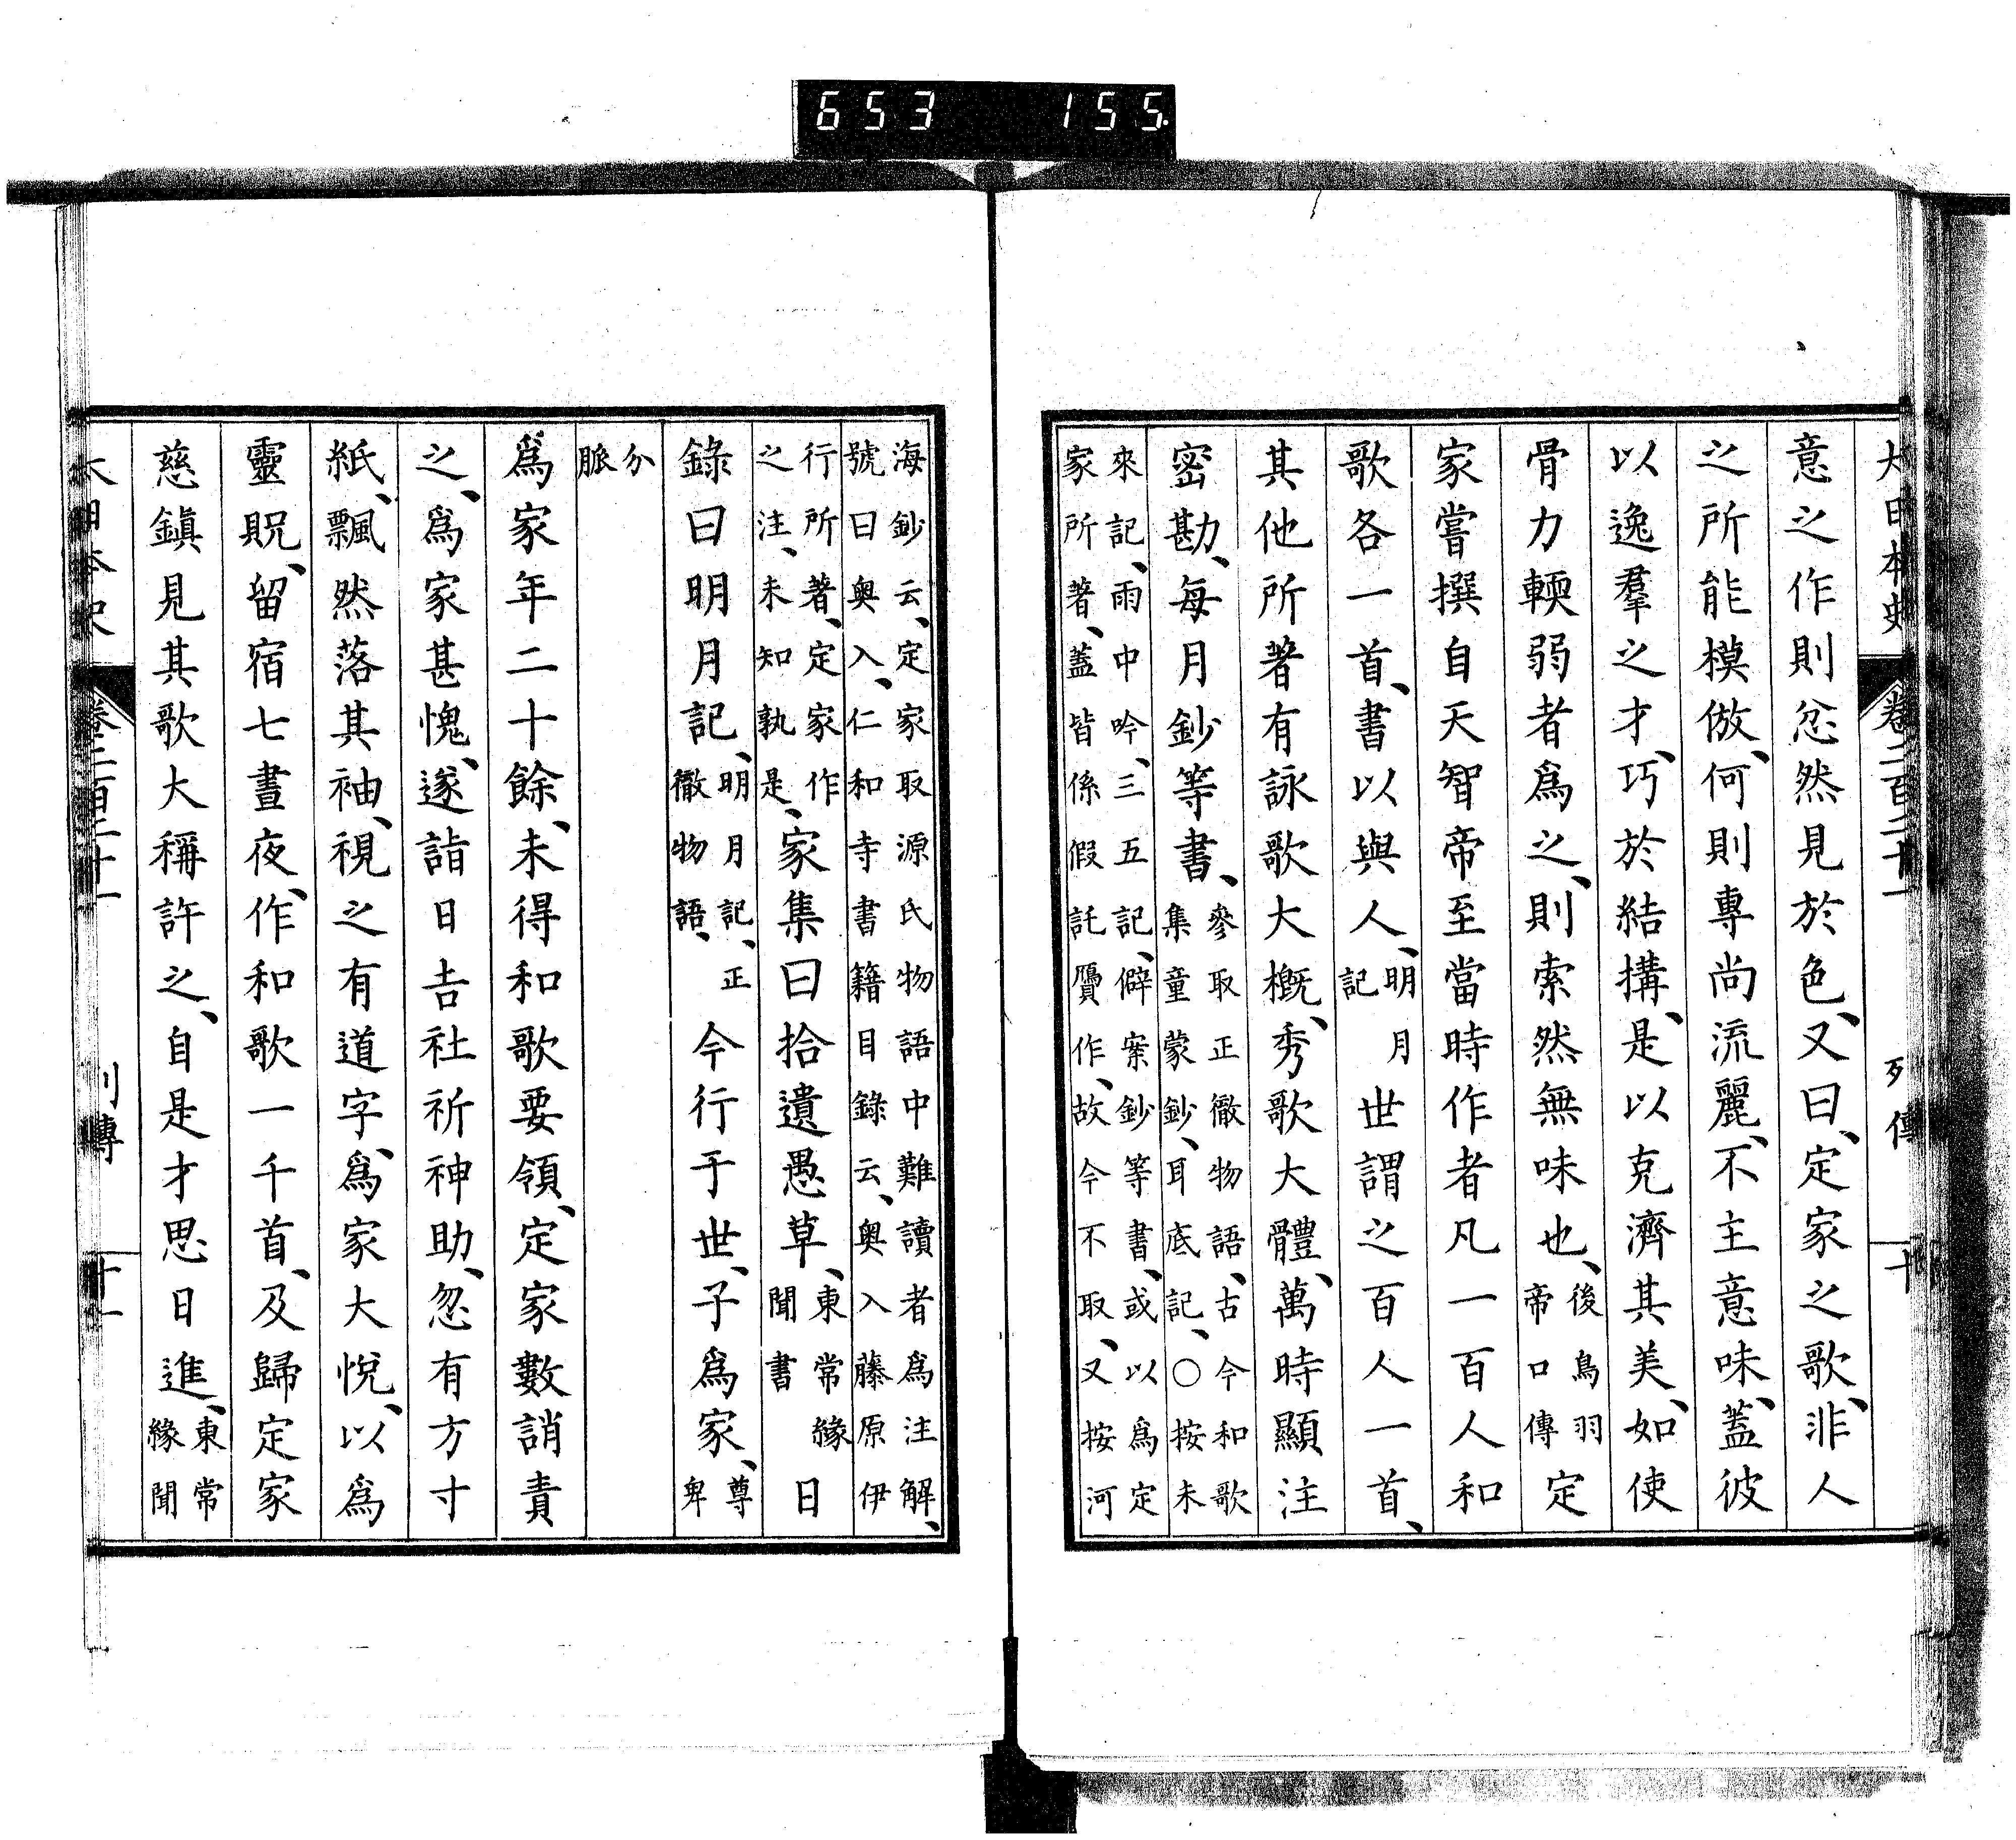 653 155
大日本史 卷二百二十一 列傳 十
意之作則忿然見於色、又曰、定家之歌、非人
之所能模倣、何則專尚流麗、不主意味、蓋彼
以逸羣之才、巧於結搆、是以克濟其美、如使
骨力輭弱者爲之、則索然無味也、後鳥羽帝口傳定
家嘗撰自天智帝至當時作者凡一百人和
歌各一首、書以與人、明月記世謂之百人一首、
其他所著有詠歌大概、秀歌大體、萬時顯注
密勘、每月鈔等書、參取正徹物語、古今和歌集童蒙鈔、耳底記、○按未
來記、雨中吟、三五記、僻案鈔等書、或以爲定家所著、蓋皆係假託贋作、故今不取、又按河
海鈔云、定家取源氏物語中難讀者爲注解、號曰奧入、仁和寺書籍目錄云、奧入藤原伊
行所著、定家作之注、未知孰是、家集曰拾遺愚草、東常緣聞書日
錄曰明月記、明月記、正徹物語、今行于世、子爲家、尊卑
分脈
爲家年二十餘、未得和歌要領、定家數誚責
之、爲家甚愧、遂詣日吉社祈神助、忽有方寸
紙、飄然落其袖、視之有道字、爲家大悅、以爲
靈貺、留宿七晝夜、作和歌一千首、及歸定家
慈鎭見其歌大稱許之、自是才思日進、東常緣聞
大日本史 卷二百二十一 列傳 十一